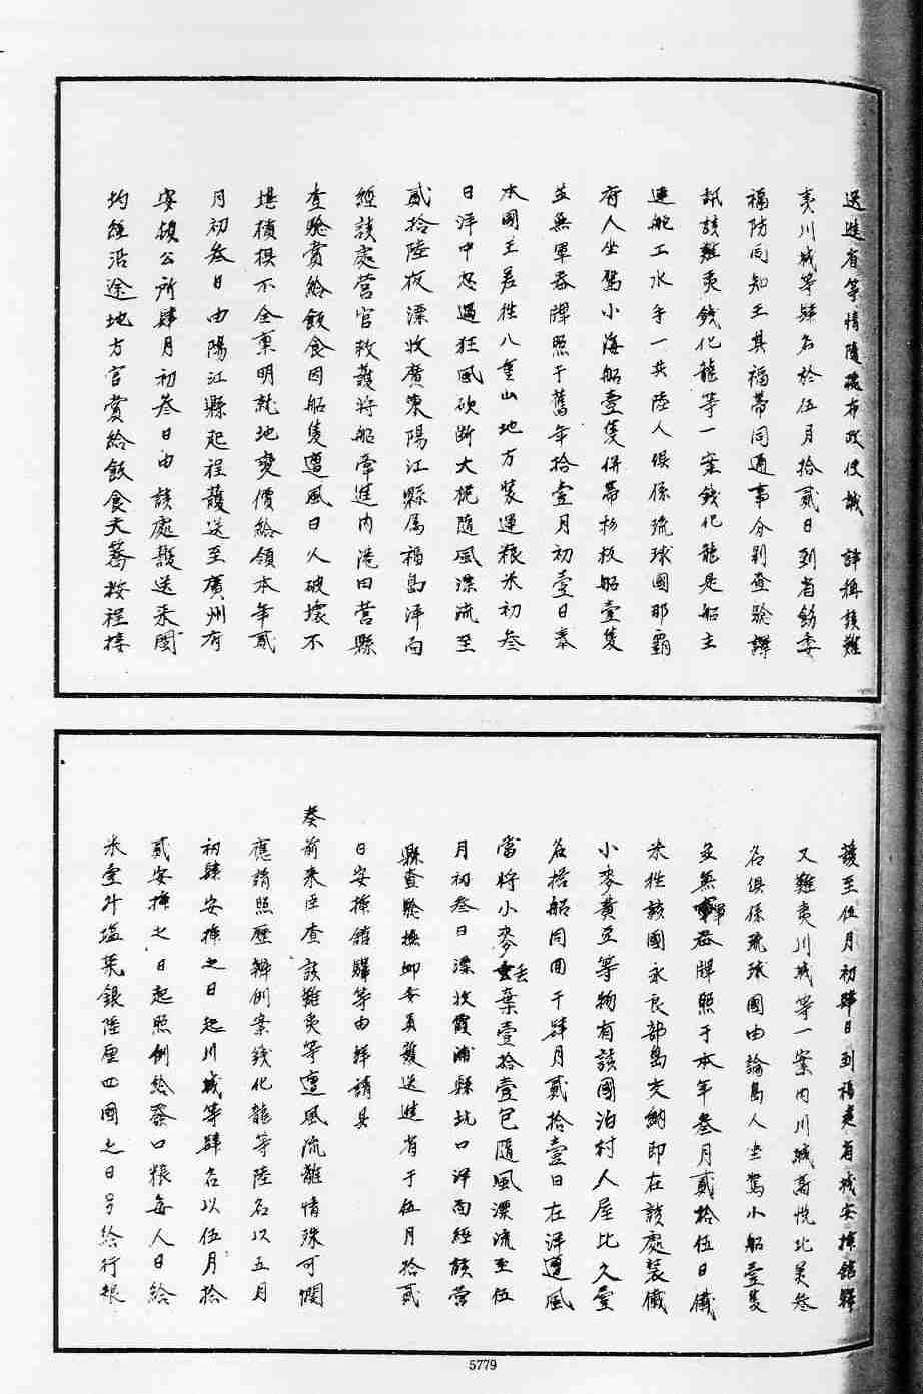 送進省等情隨據布政使誠 詳稱該難
夷川城等肆名於伍月拾貳日到省飭委
福防同知王其福帶同通事分別查驗譯
訊該難夷錢化龍等一案錢化龍是船主
連舵工水手一共陸人俱係琉球國那霸
府人坐駕小海船壹隻併帶杉板船壹隻
並無軍器牌照于舊年拾壹月初壹日奉
本國王差往八重山地方裝運粮米初叁
日洋中忽遇狂風砍斷大桅隨風漂流至
貳拾陸夜漂收廣東陽江縣属福島洋面
經該處營官救護將船牽進内港由營縣
查驗賞給飯食因船隻遭風日久破壞不
堪積損不全稟明就地變價給領本年貳
月初叁日由陽江縣起程護送至廣州省
安頓公所肆月初叁日由該處護送来閩
均經沿途地方官賞給飯食夫蓆按程接
護至伍月初肆日到福建省城安揷館驛
又難夷川城等一案内川城高悦比美叁
名俱係琉球國由論島人坐駕小船壹隻
並無軍器牌照于本年叁月貳拾伍日儎
米往該國永良部島交納即在該處裝儎
小麥黄豆等物有該國泊村人屋比久壹
名搭船同回于肆月貳拾壹日在洋遭風
當將小麥丢棄壹拾壹包隨風漂流至伍
月初叁日漂收霞浦縣坑口洋面經該營
縣查驗撫卹委員護送進省于伍月拾貳
日安揷館驛等由詳請具
奏前来臣查該難夷等遭風流離情殊可憫
應請照歷辦例案錢化龍等陸名以五月
初肆安揷之日起川城等肆名以伍月拾
貳安揷之日起照例給發口粮每人日給
米壹升塩菜銀陸厘回國之日另給行粮
5779